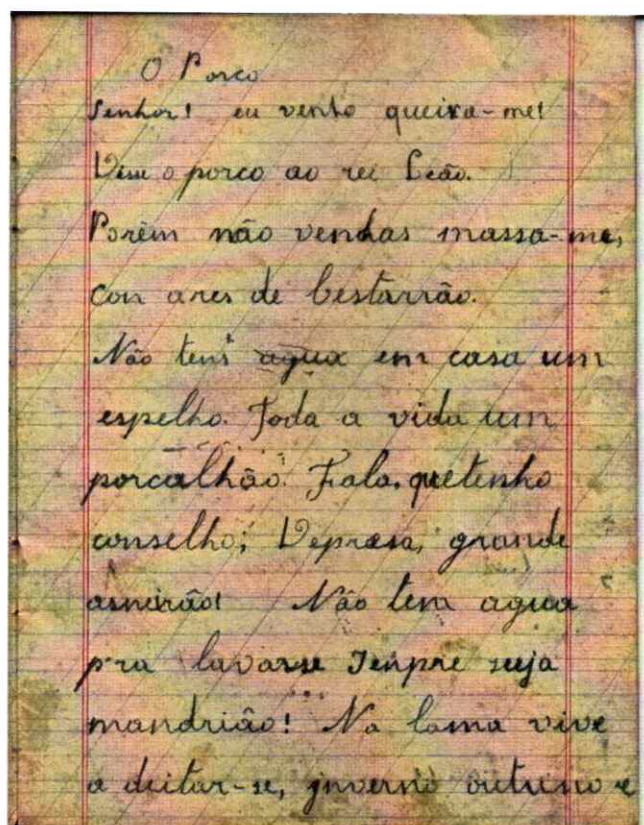 O Porco
Senhor! eu venho queixa-me!
Disse o porco ao rei Leão.
Porêm não venhas massa-me,
con ares de bestarrão.
Não tens agua em casa um
espelho. Toda a vida um
porcalhão. Fala, que tenho
conselho; Depresa, grande
asneirão! Não tem agua
pra lavarse Senpre suja
mandrião! Na lama vive
a deitar-se, inverno outuno e